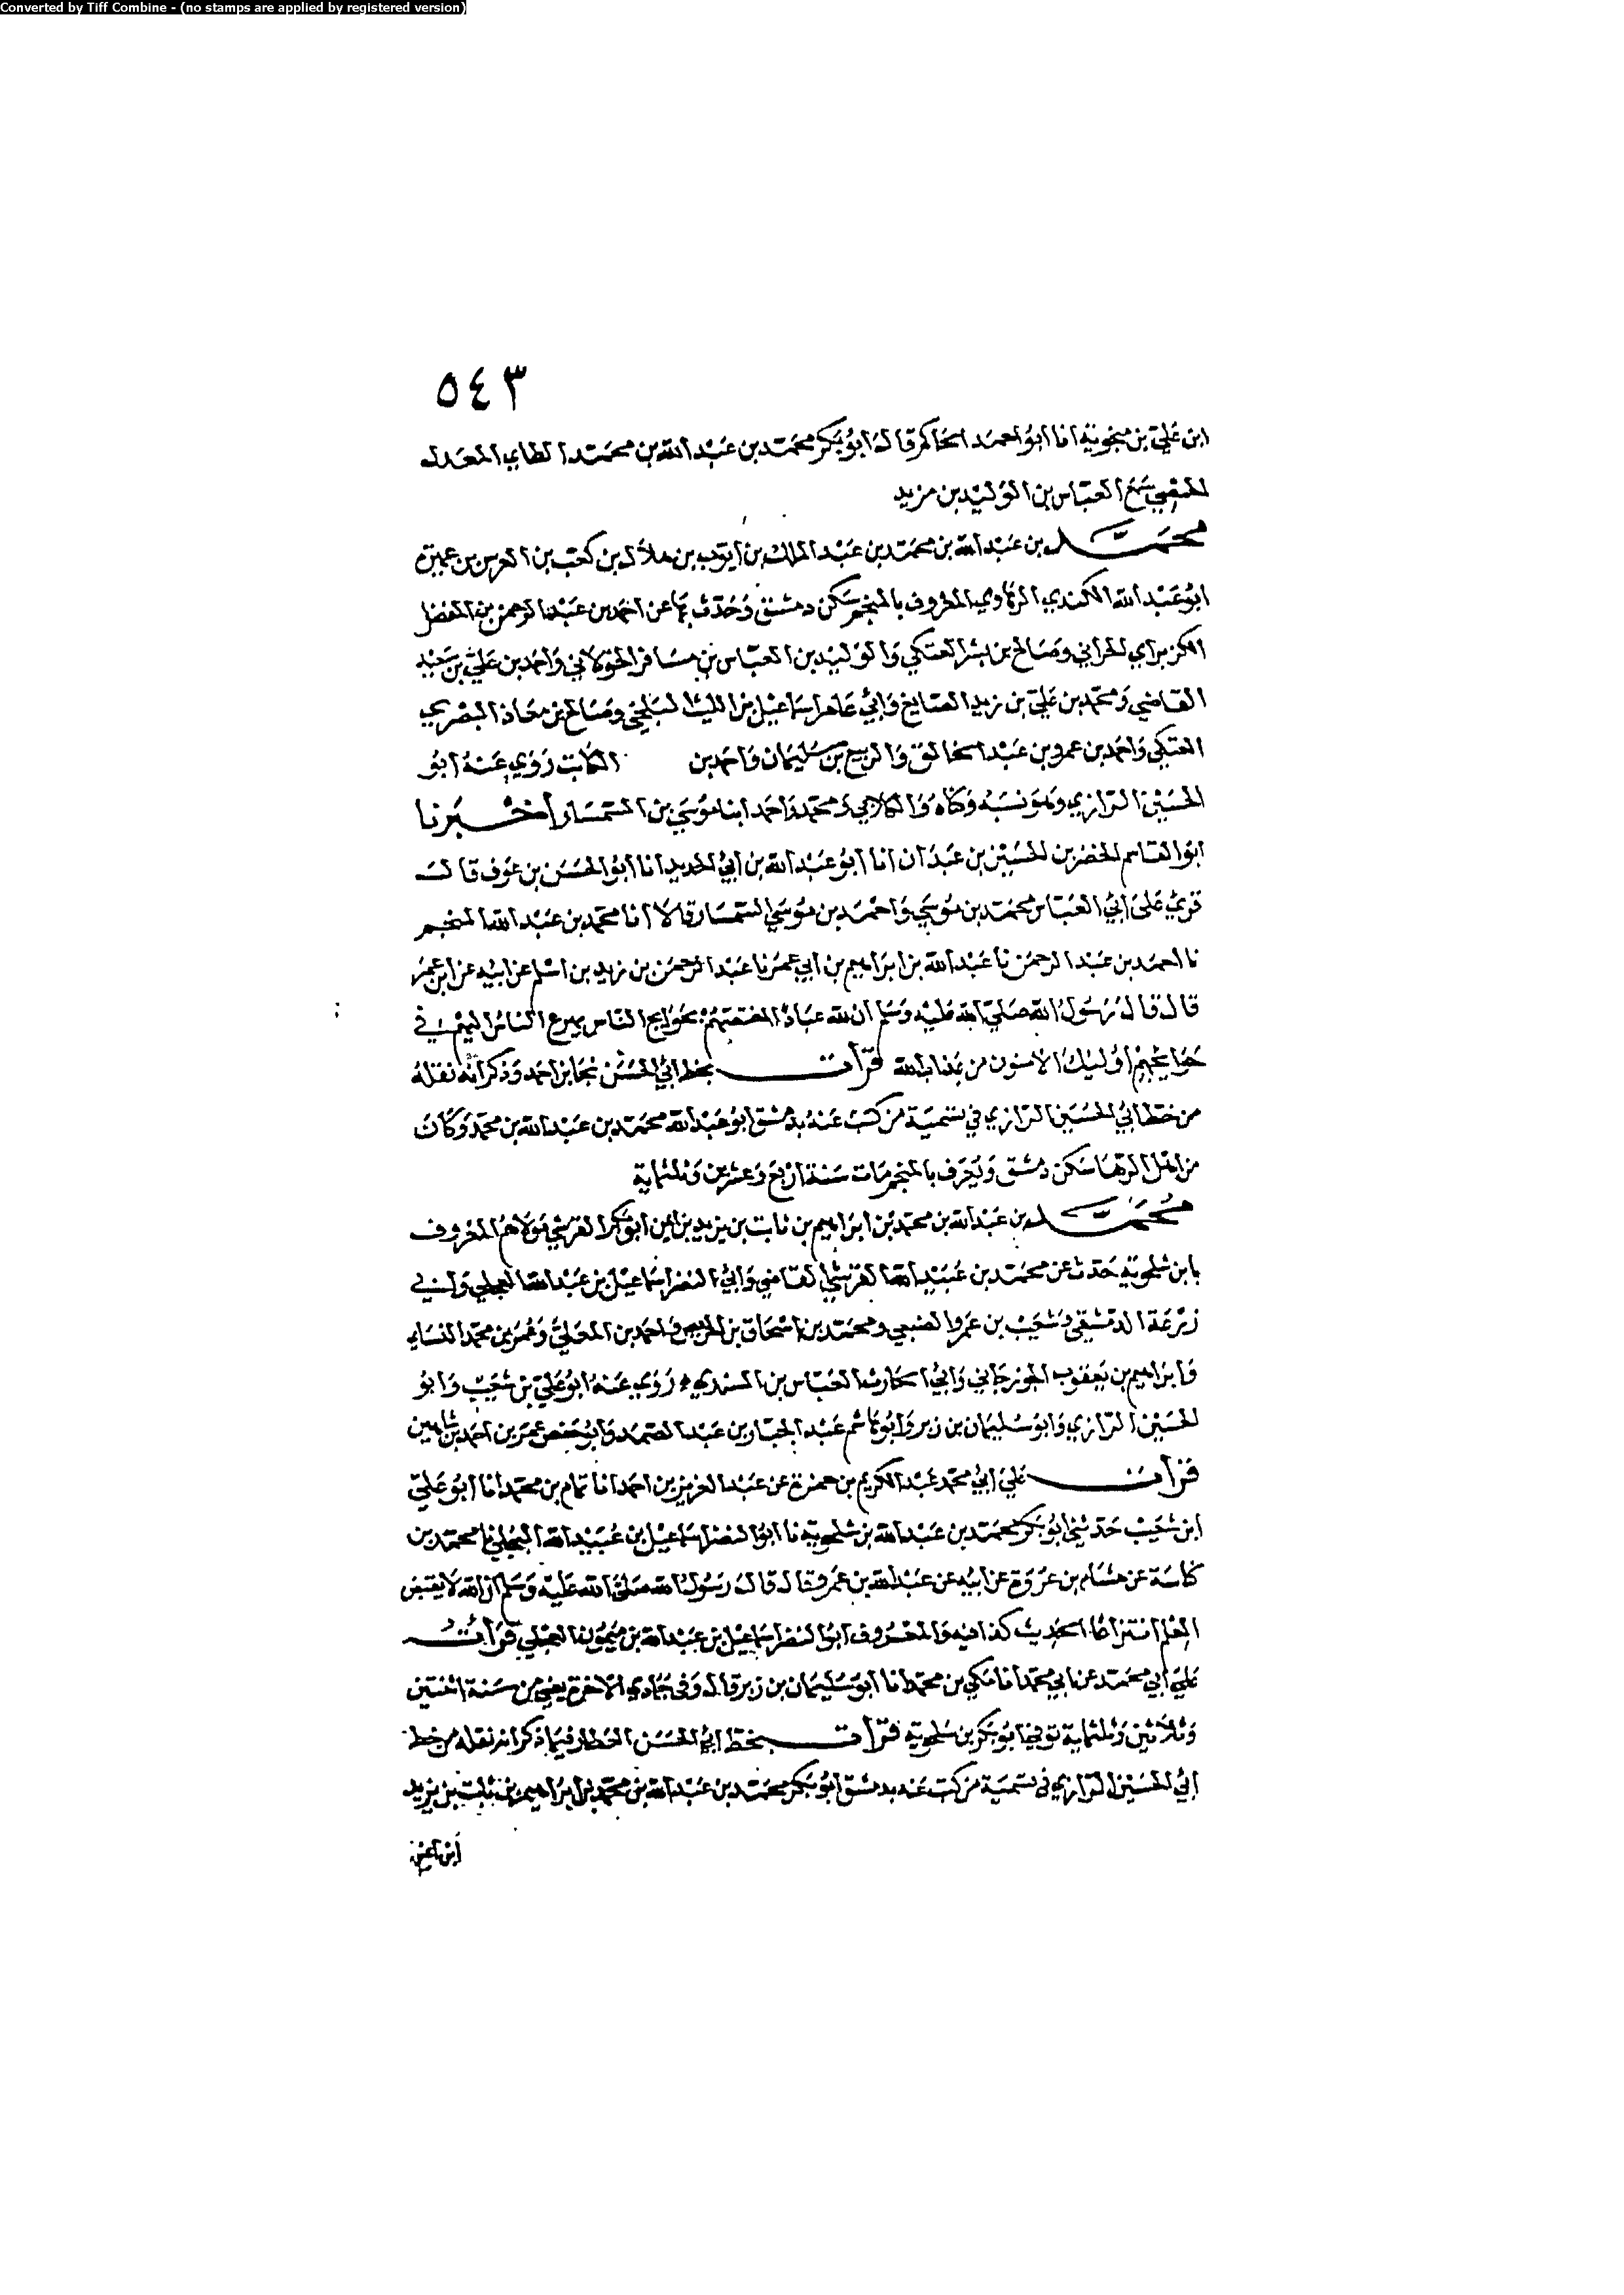 Converted by Tiff Combine - (no stamps are applied by registered version)
٥٤٣
ابن علي بن منجوية انا ابو احمد الحاكم قال ابو بكر محمد بن عبد الله بن محمد الطاي المعدل
الحمصي سمع العباس بن الوليد بن مزيد
محمد بن عبد الله بن محمد بن عبد الملك بن ايوب بن هلال بن كعب بن العرس بن عميرة
ابو عبد الله الكندي الرهاوي المعروف بالمنجم سكن دمشق وحدث بها عن احمد بن عبد الرحمن بن المفضل
الكزبراي الحراني وصالح بن بشر العتكي والوليد بن العباس بن مسافر الخولاني واحمد بن علي بن سعيد
القاضي ومحمد بن علي بن زيد الصايغ وابي عامر اسماعيل بن الليث البلخي وصالح بن معاذ البصري
العتكي واحمد بن عمرو بن عبد الخالق والربيع بن سليمان واحمد بن الكاتب روي عنه ابو
الحسين الرازي وهو نسبه وكناه والكلابي ومحمد واحمد ابنا موسي بن السمسار اخبرنا
ابو القاسم الخضر بن الحسين بن عبدان انا ابو عبد الله بن ابي الحديد انا ابو الحسن بن عوف قال
قري علي ابي العباس محمد بن موسي واحمد بن موسي السمسار قالا انا محمد بن عبد الله المنجم
نا احمد بن عبد الرحمن نا عبد الله بن ابراهيم بن ابي عمر نا عبد الرحمن بن زيد بن اسلم عن ابيه عن ابن عمر
قال قال رسول الله صلي الله عليه وسلم ان لله عبادا اختصهم بحوايج الناس يفزع الناس اليهم في
حوايجهم اوليك الامنون من عذاب الله قرأت بخط ابي الحسن نجا بن احمد وذكر انه نقله
من خط ابي الحسين الرازي في تسمية من كتب عنه بدمشق ابو عبد الله محمد بن عبد الله بن محمد وكان
من اهل الرها سكن دمشق ويعرف بالمنجم مات سنة اربع وعشرين وثلثماية
محمد بن عبد الله بن محمد بن ابراهيم بن ثابت بن يزيد بن ابو بكر القرشي مولاهم المعروف
بابن شلحوية حدث عن محمد بن عبيد الله القرشي القاضي وابي النضر اسماعيل بن عبد الله العجلي وابي
زرعة الدمشقي وشعيب بن عمرو الضبعي ومحمد بن اسحاق بن الحريص واحمد بن المعلي وعمر بن محمد النساي
وابراهيم بن يعقوب الجوزجاني وابي الحارث العباس بن السندي روي عنه ابو علي بن شعيب وابو
الحسين الرازي وابو سليمان بن زبر وابو هاشم عبد الجبار بن عبد الصمد وابو حفص عمر بن احمد بن شاهين
قرأت علي ابي محمد عبد الكريم بن حمزة عن عبد العزيز بن احمد انا تمام بن محمد انا ابو علي
ابن شعيب حدثني ابو بكر محمد بن عبد الله بن شلحوية نا ابو النضر اسماعيل بن عبيد الله العجلي نا محمد بن
كناسة عن هشام بن عروة عن ابيه عن عبد الله بن عمرو قال قال رسول الله صلي الله عليه وسلم ان الله لا يقبض
العلم انتزاعا الحديث كذا فيه والمعروف ابو النضر اسماعيل بن عبد الله بن ميمون العجلي قرأت
علي ابي محمد عن ابي محمد انا مكي بن محمد انا ابو سليمان بن زبر قال وفي جمادي الاخرة يعني من سنة اثنتين
وثلاثين وثلثماية توفي ابو بكر بن شلحوية قرأت بخط ابي الحسن الخطاب فيما ذكر انه نقله من خط
ابي الحسين الرازي في تسمية من كتب عنه بدمشق ابو بكر محمد بن عبد الله بن محمد بن ابراهيم بن ثابت بن يزيد